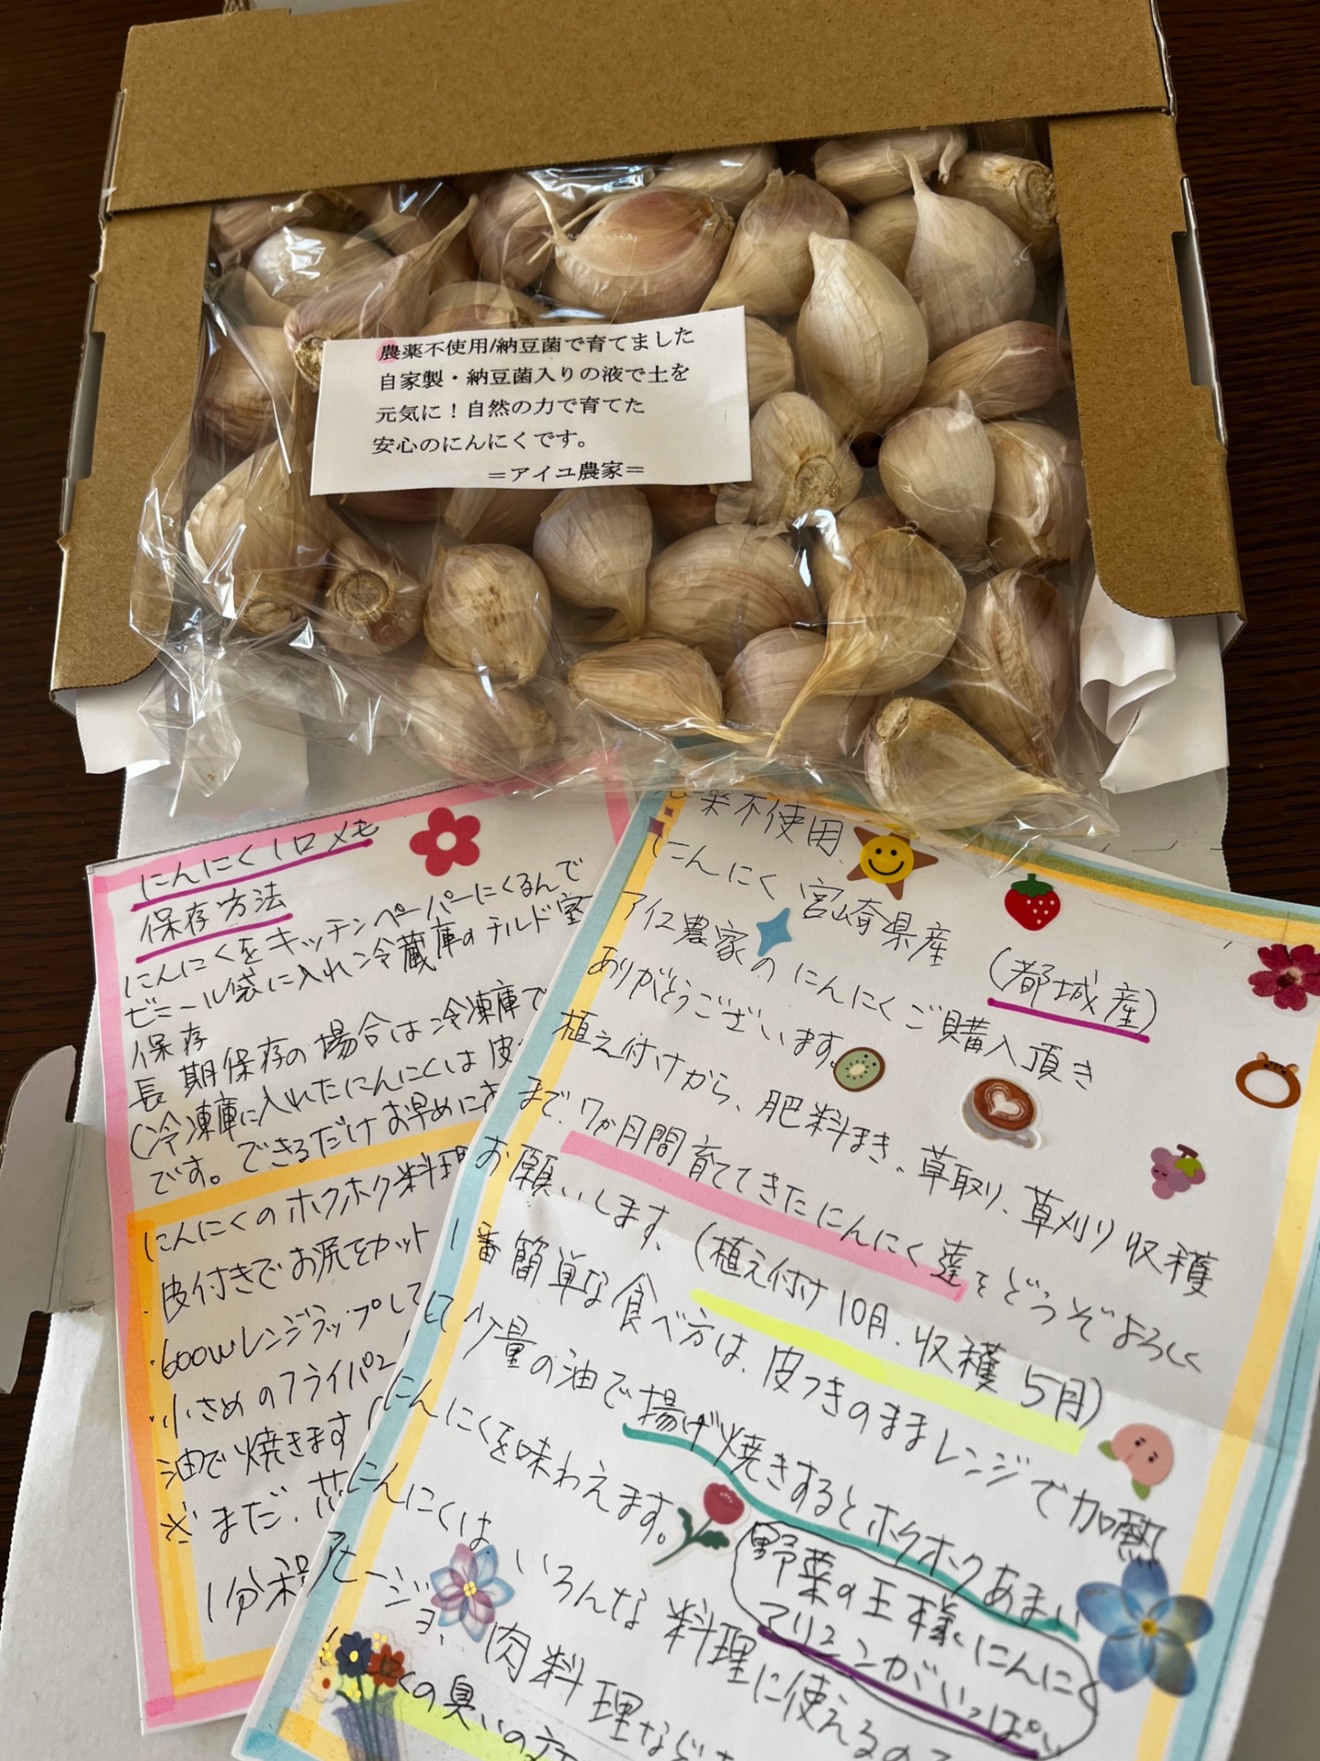 農薬不使用/納豆菌で育てました
自家製・納豆菌入りの液で土を
元気に！自然の力で育てた
安心のにんにくです。
＝アイユ農家＝
にんにく1口メモ
保存方法
にんにくをキッチンペーパーにくるんで
ビニール袋に入れ冷蔵庫のチルド室
保存
長期保存の場合は冷凍庫で
(冷凍庫に入れたにんにくは皮
です。できるだけお早めにお
にんにくのホクホク料理
・皮付きでお尻をカット
・600wレンジラップして
・小さめのフライパン
油で焼きます
※まだ、芯
1分程
薬不使用、
にんにく 宮崎県産 (都城産)
アイユ農家のにんにくご購入頂き
ありがとうございます。
植え付けから、肥料まき、草取り、草刈り収穫
まで、7か月間育ててきたにんにく達をどうぞよろしく
お願いします。(植え付け10月、収穫5月)
1番簡単な食べ方は、皮つきのままレンジで加熱
少量の油で揚げ焼きするとホクホクあまい
にんにくを味わえます。
野菜の王様、にんにく
アリシンがいっぱい
にんにくは、いろんな料理に使える
アヒージョ、肉料理など
くの臭いの